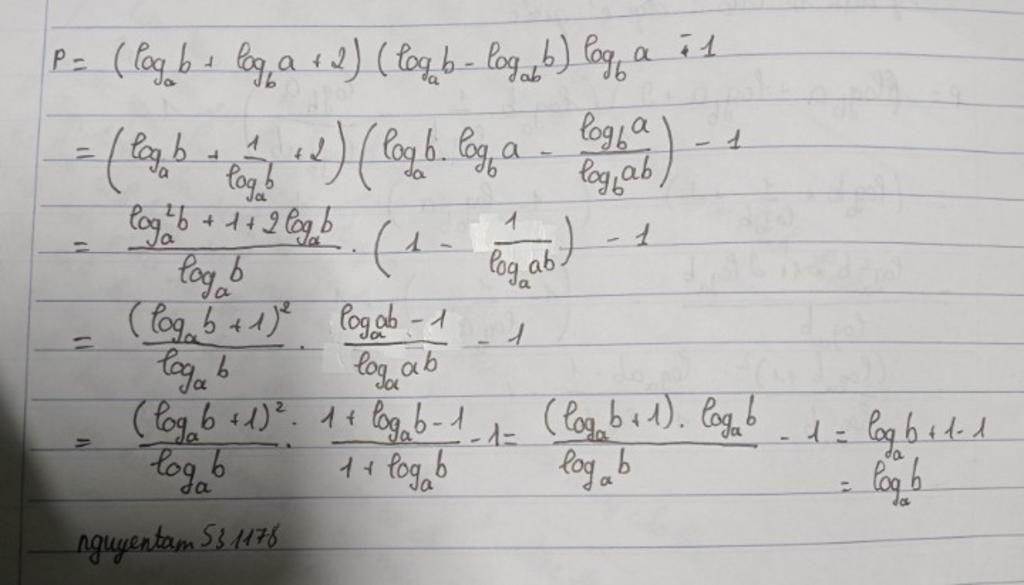 P = (log_a b + log_b a + 2) (log_a b - log_ab b) log_b a - 1
= (log_a b + 1/log_a b + 2) (log_a b . log_b a - log_b a / log_b ab) - 1
= (log_a^2 b + 1 + 2 log_a b) / log_a b . (1 - 1/log_a ab) - 1
= (log_a b + 1)^2 / log_a b . (log_a ab - 1) / log_a ab - 1
= (log_a b + 1)^2 / log_a b . (1 + log_a b - 1) / (1 + log_a b) - 1 = (log_a b + 1) . log_a b / log_a b - 1 = log_a b + 1 - 1
= log_a b
nguyentam531178